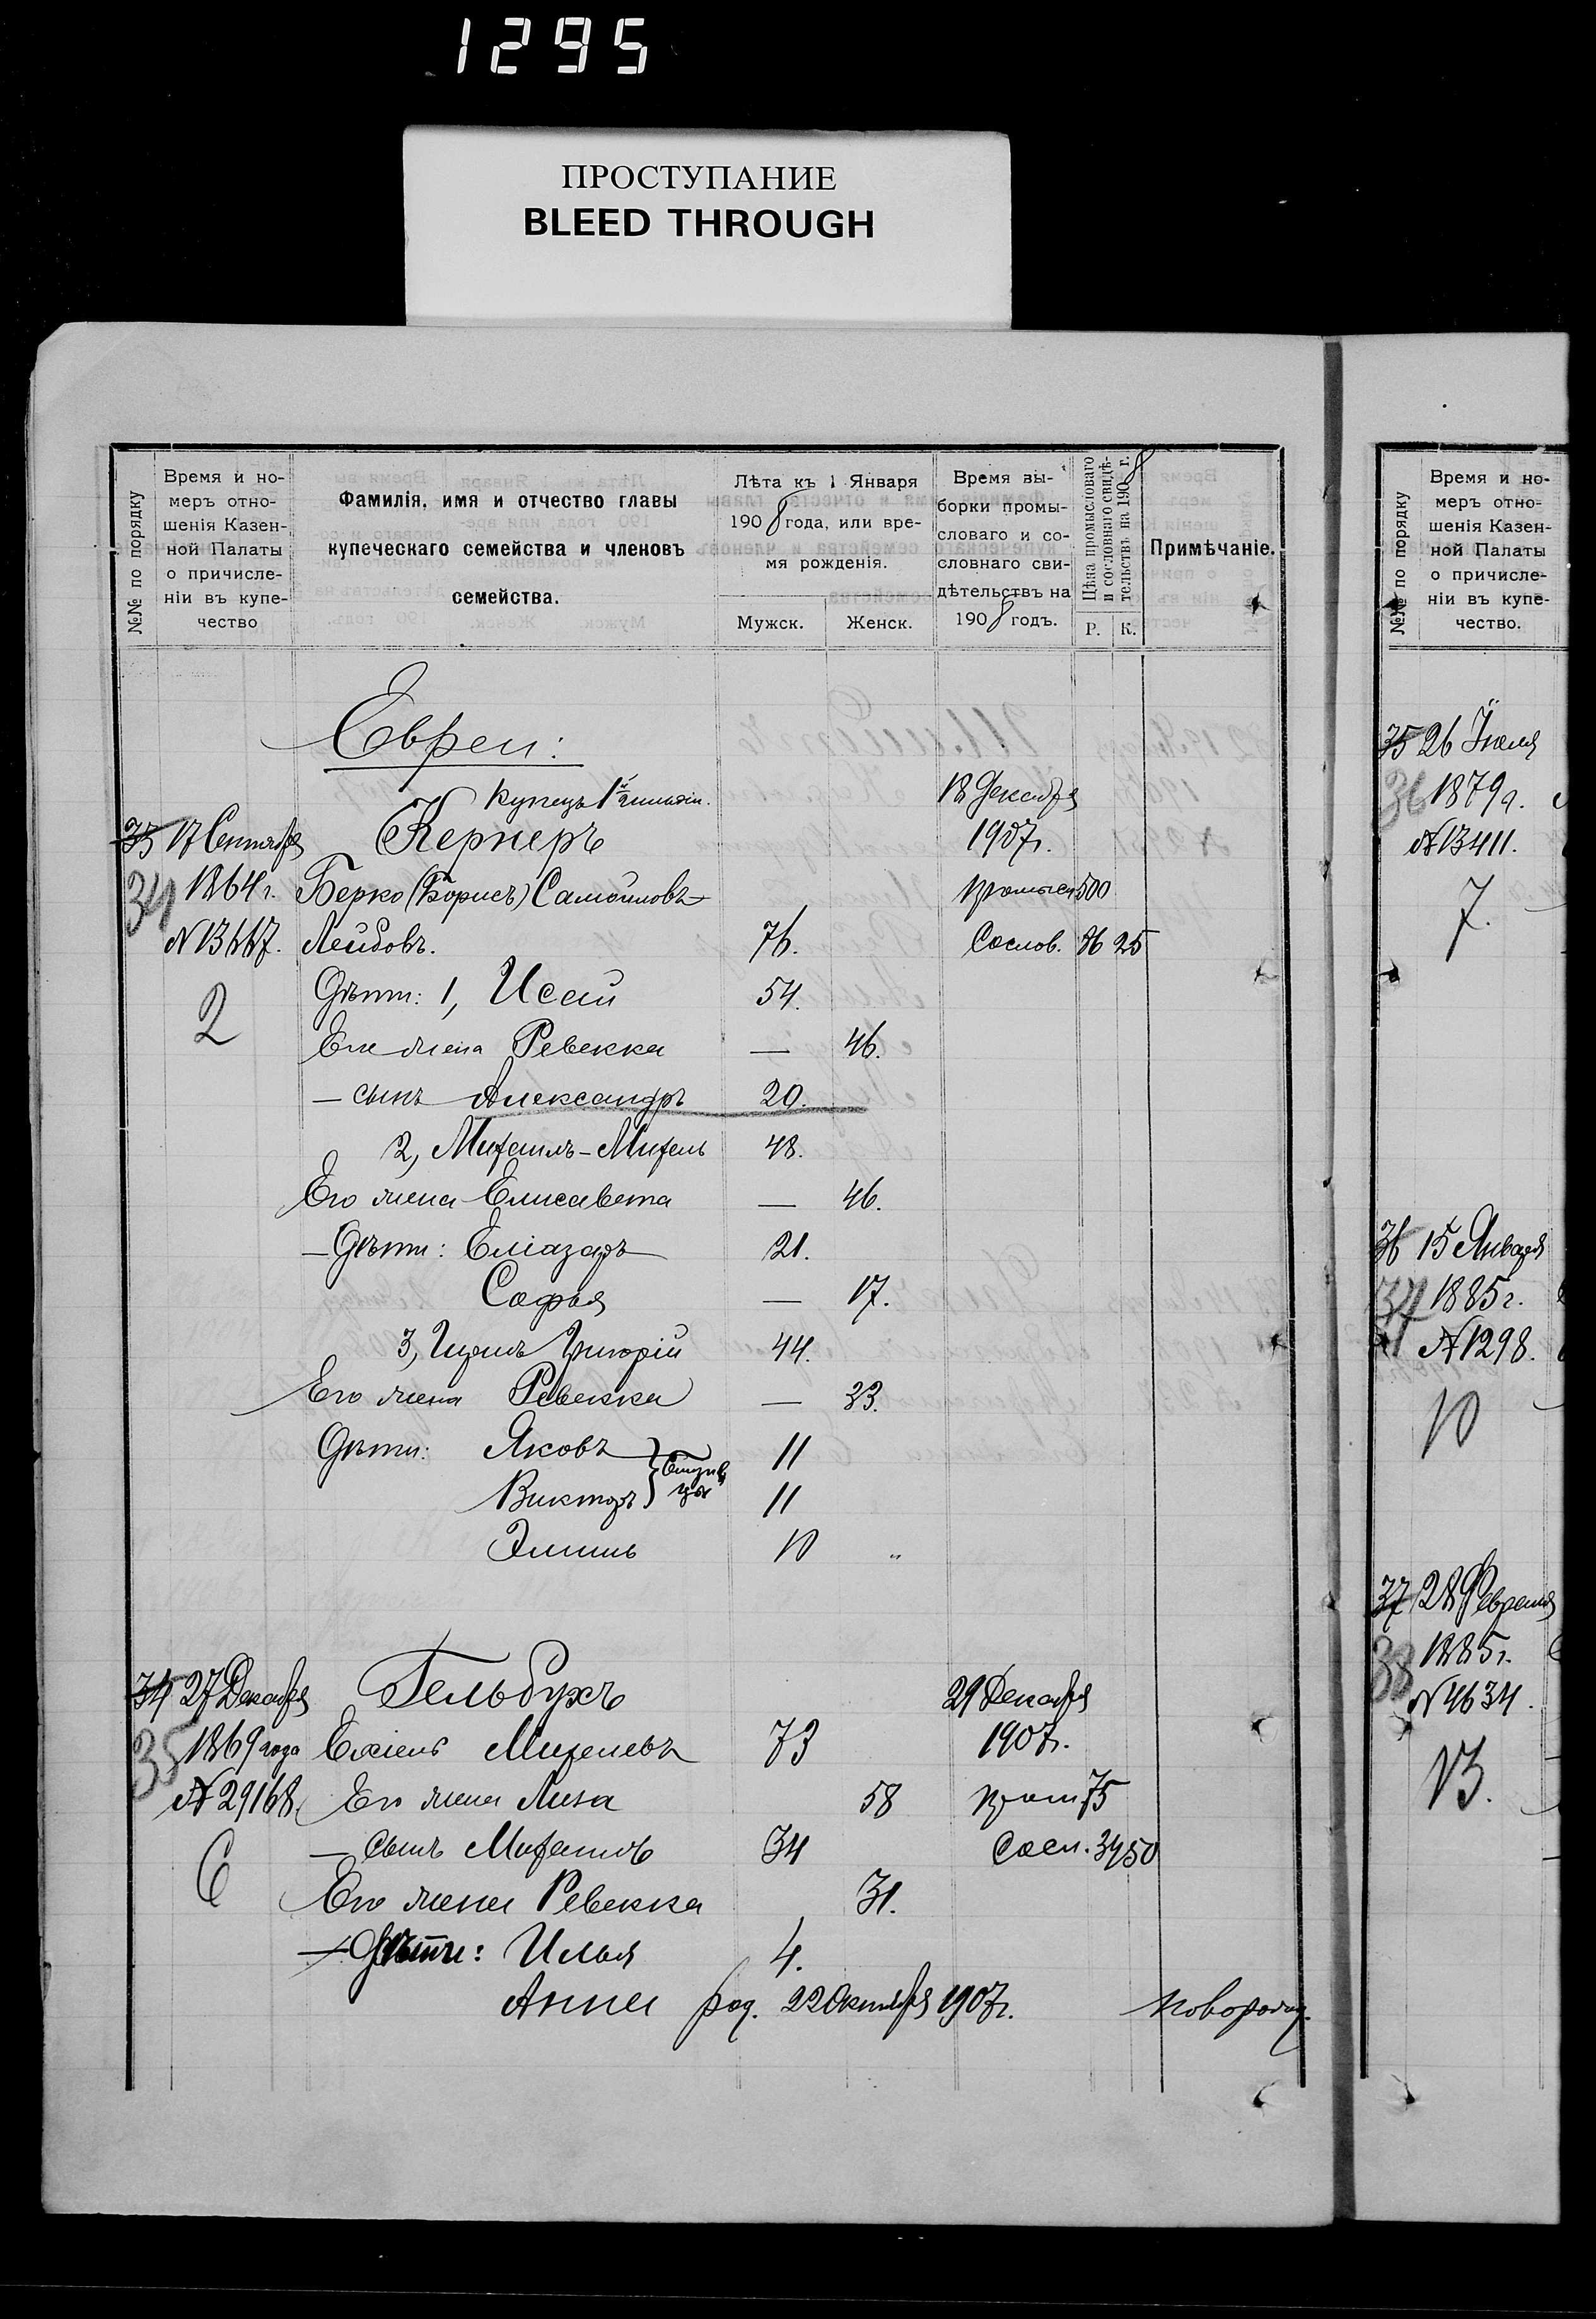 1295
ПРОСТУПАНИЕ
BLEED THROUGH
№№ по порядку
Время и но-
меръ отно-
шенія Казен-
ной Палаты
о причисле-
ніи въ купе-
чество
Фамилія, имя и отчество главы
купеческаго семейства и членовъ
семейства.
Лѣта къ 1 Января
1908 года, или вре-
мя рожденія.
Мужск. Женск.
Время вы-
борки промы-
словаго и со-
словнаго сви-
дѣтельствъ на
1908 годъ.
Цѣна промысловаго
и сословнаго свидѣ-
тельствъ на 1908 г.
Р. К.
Примѣчаніе.
Евреи:
Купецъ 1й гильдіи. 18 Декабря
33 17 Сентября Кернеръ 1907 г.
34 1864 г. Берко (Борисъ) Самойловъ- 500
N 13667. Лейбовъ. 76. Сослов. 86 25
2 Дѣти: 1, Исай 54.
Его жена Ревекка — 46.
— сынъ Александръ 20.
2, Михаилъ-Михель 48.
Его жена Елисавета — 46.
— Дѣти: Еліазаръ 21.
Софья — 17.
3, Григорій 44.
Его жена Ревекка — 33.
Дѣти: Яковъ 11
Викторъ 11
Эмиль 10 "
34 27 Декабря Гельбухъ 29 Декабря
35 1869 года Ехіель Михелевъ 73 1907 г.
N 29168. Его жена Лиза 58 пром 75
6 — сынъ Михаилъ 34 Сосл. 34 50
Его жена Ревекка 31.
— Дѣти: Илья 4.
Анна род. 22 Октября 1907 г. новорожд.
№№ по порядку
Время и но-
меръ отно-
шенія Казен-
ной Палаты
о причисле-
ніи въ купе-
чество.
35 26 Іюля
36 1879 г.
N 13411.
7.
36 15 Января
37 1885 г.
N 1298.
10
37 28 Февраля
38 1885 г.
N 4634.
13.